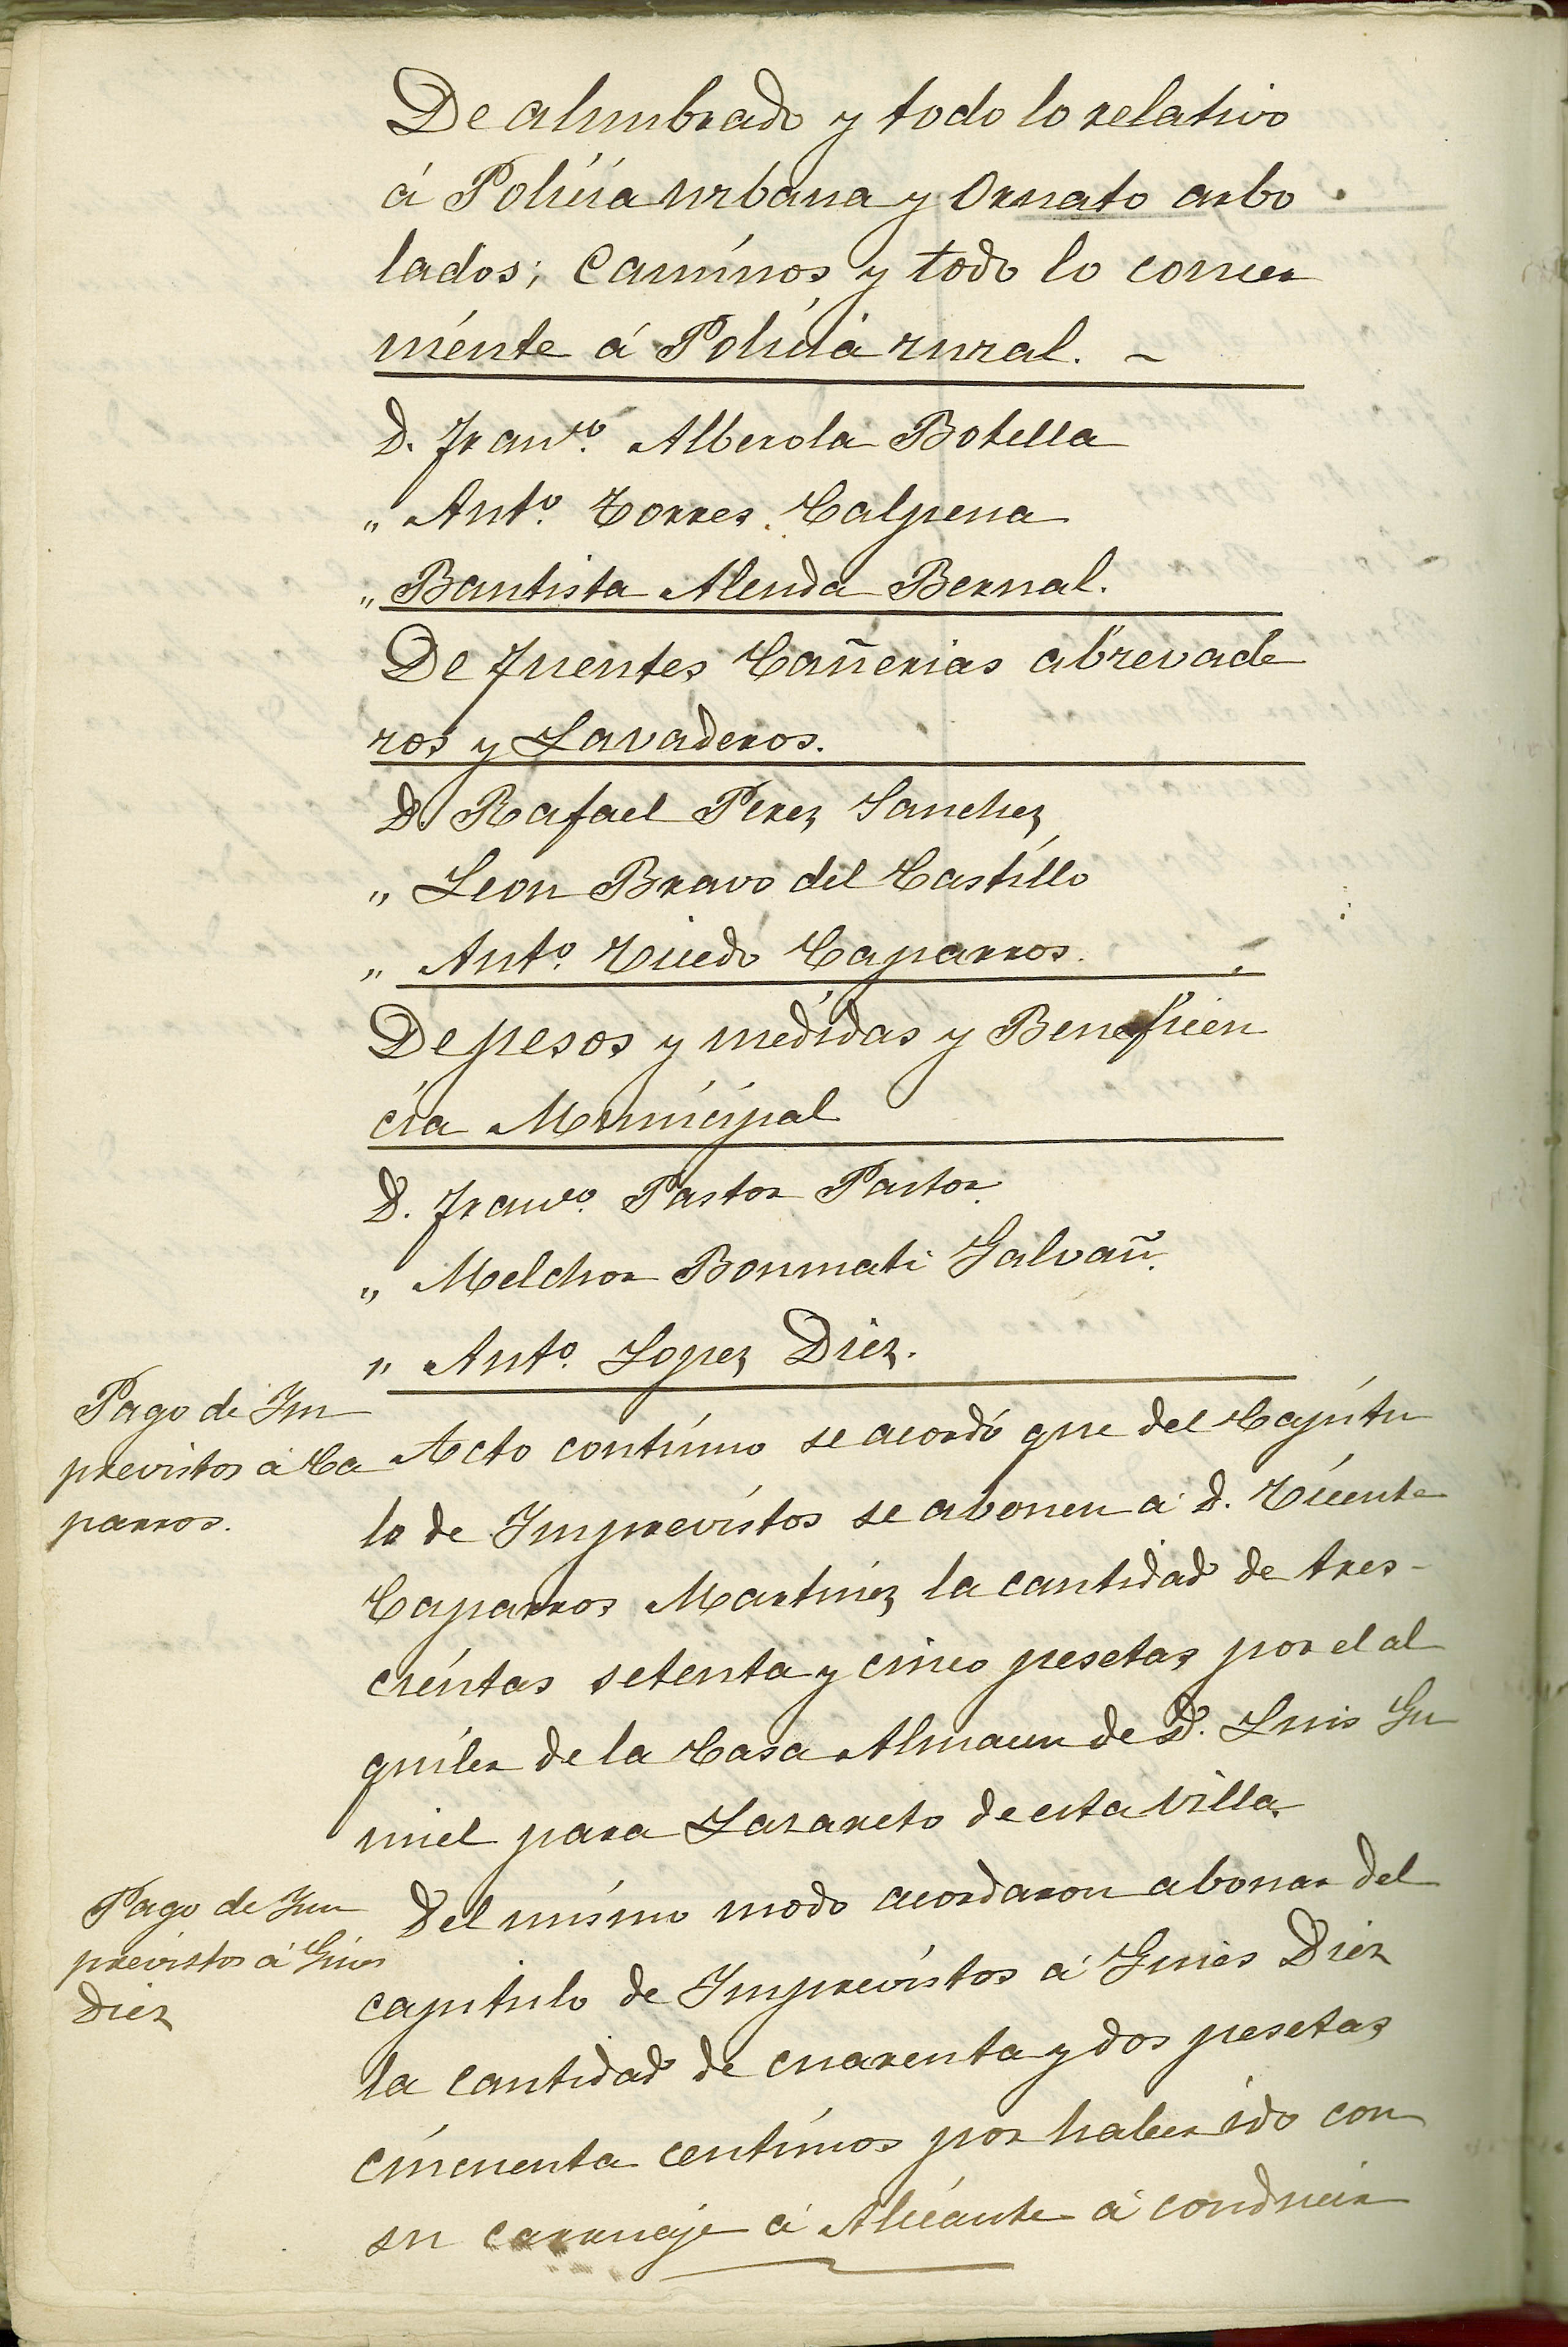 De alumbrado y todo lo relativo
á Policía urbana y Ornato arbo
lados; Caminos y todo lo concer
niente á Policia rural. ~
D. Franco. Alberola Botella
„ Anto. Torres Calpena
„ Bautista Alenda Bernal.
De fuentes Cañerias abrevade
ros y Lavaderos.
D. Rafael Perez Sanchez
„ Leon Bravo del Castillo
„ Anto. Vicedo Caparros.
De pesos y medidas y Beneficen
cia Municipal
D. Franco. Pastor Pastor.
„ Melchor Bonmati Galvañ.
„ Anto. Lopez Diez.
Pago de Im
previstos á Ca
parros.
Acto contínuo se acordó que del Capítu
lo de Imprevistos se abonen á D. Vicente
Caparros Martinez la cantidad de tres-
cientas setenta y cinco pesetas por el al
quiler de la Casa Almacen de D. Luis Gu
miel para Lazareto de esta Villa.
Pago de Im
previstos á Gines
Diez
Del mismo modo acordaron abonar del
capitulo de Imprevistos á Gines Diez
la cantidad de cuarenta y dos pesetas
cincuenta centimos por haber ido con
su carruaje á Alicante á conducir